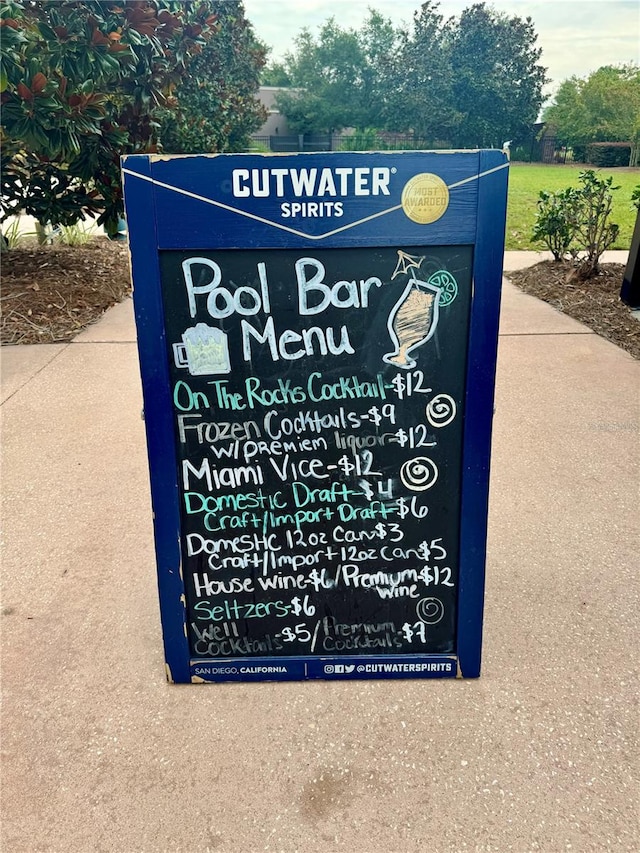 CUTWATER®
SPIRITS
MOST AWARDED
Pool Bar
Menu
On The Rocks Cocktail-$12
Frozen Cocktails-$9
w/Premiem liquor-$12
Miami Vice-$12
Domestic Draft-$4
Craft/Import Draft-$6
Domestic 12oz Can-$3
Craft/Import 12oz Can $5
House wine-$6/Premium wine-$12
Seltzers-$6
Well Cocktails-$5/Premium Cocktails-$7
SAN DIEGO, CALIFORNIA
@CUTWATERSPIRITS